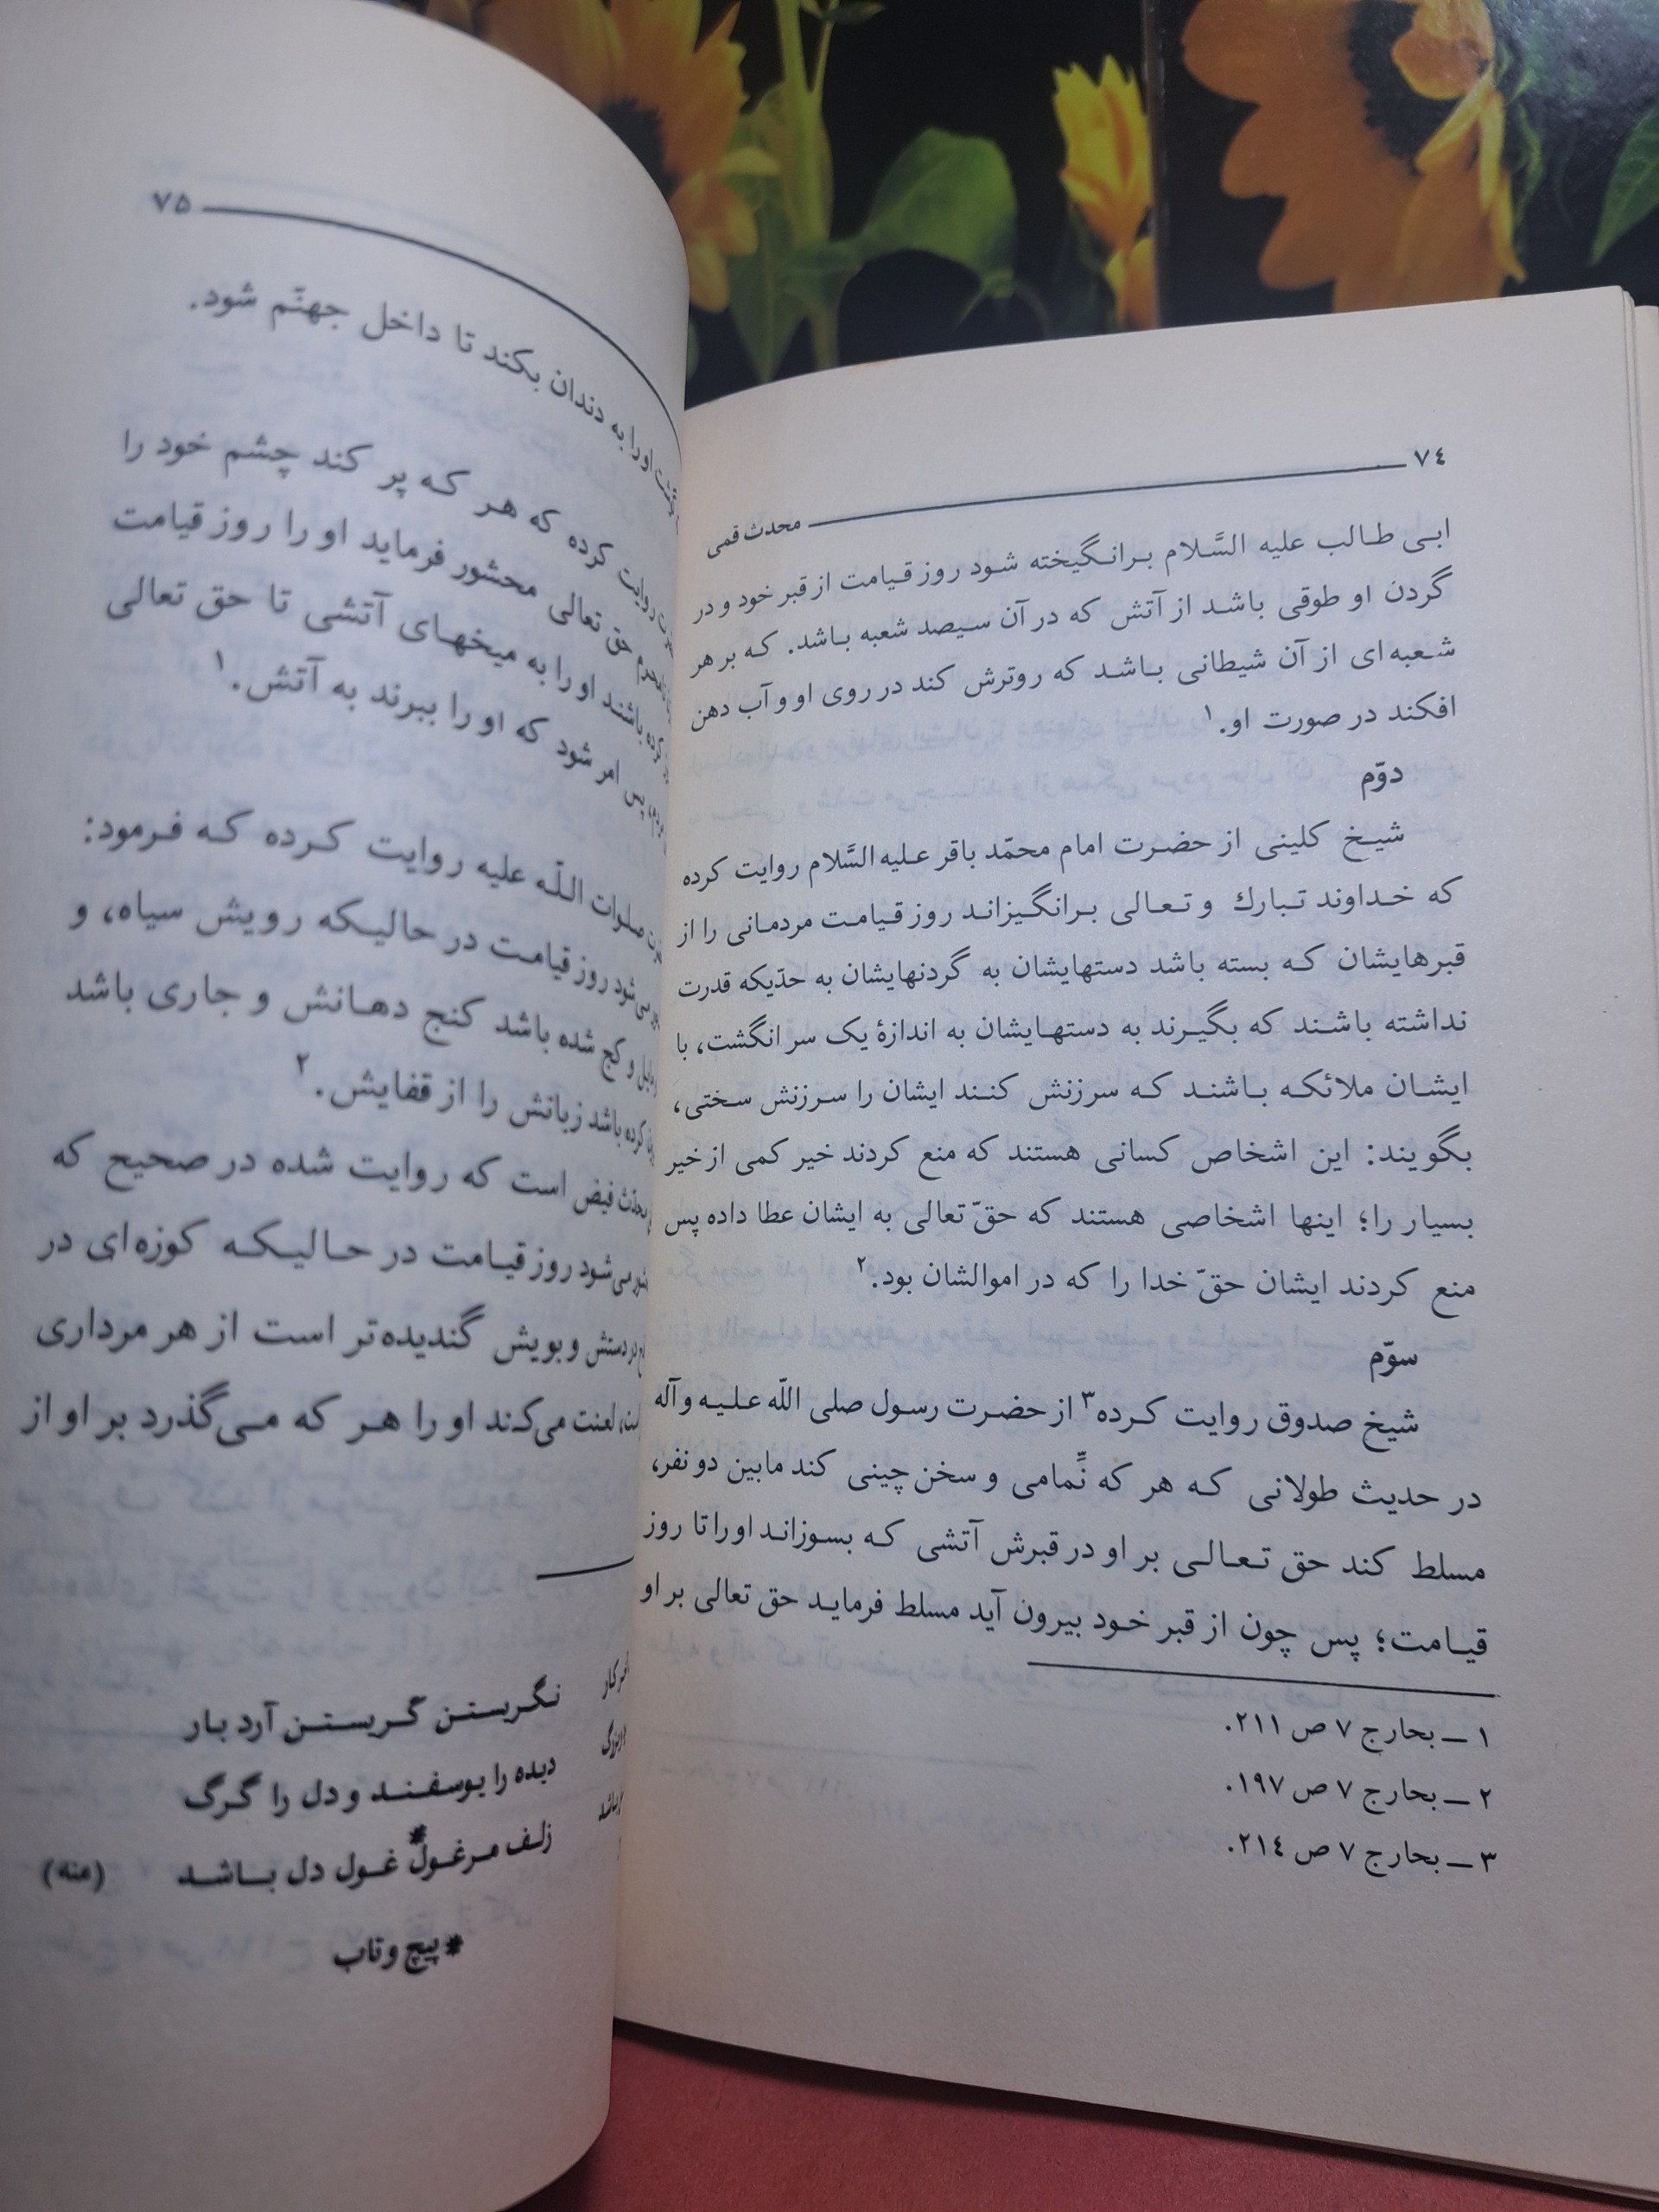 ٧٤
محدث قمی
ابی طالب علیه السَّلام برانگیخته شود روز قیامت از قبر خود و در
گردن او طوقی باشد از آتش که در آن سیصد شعبه باشد. که بر هر
شعبه‌ای از آن شیطانی باشد که روترش کند در روی او و آب دهن
افکند در صورت او.۱
دوّم
شیخ کلینی از حضرت امام محمّد باقر علیه السَّلام روایت کرده
که خداوند تبارك و تعالی برانگیزاند روز قیامت مردمانی را از
قبرهایشان که بسته باشد دستهایشان به گردنهایشان به حدّیکه قدرت
نداشته باشند که بگیرند به دستهایشان به اندازهٔ یک سر انگشت، با
ایشان ملائکه باشند که سرزنش کنند ایشان را سرزنش سختی،
بگویند: این اشخاص کسانی هستند که منع کردند خیر کمی از خیر
بسیار را؛ اینها اشخاصی هستند که حقّ تعالی به ایشان عطا داده پس
منع کردند ایشان حقّ خدا را که در اموالشان بود.۲
سوّم
شیخ صدوق روایت کرده۳ از حضرت رسول صلی اللّه علیه وآله
در حدیث طولانی که هر که نَّمامی و سخن چینی کند مابین دو نفر،
مسلط کند حق تعالی بر او در قبرش آتشی که بسوزاند او را تا روز
قیامت؛ پس چون از قبر خود بیرون آید مسلط فرماید حق تعالی بر او
۱ ـ بحار ج ۷ ص ۲۱۱.
۲ ـ بحار ج ۷ ص ۱۹۷.
۳ ـ بحار ج ۷ ص ۲۱٤.
۷۵
او را به دندان بکند تا داخل جهنّم شود.
روایت کرده که هر که پر کند چشم خود را
حق تعالی محشور فرماید او را روز قیامت
کرده باشند او را به میخهای آتشی تا حق تعالی
پس امر شود که او را ببرند به آتش.۱
صلوات اللّه علیه روایت کرده که فرمود:
می‌شود روز قیامت در حالیکه رویش سیاه، و
و کج شده باشد کنج دهانش و جاری باشد
کرده باشد زبانش را از قفایش.۲
محدّث فیض است که روایت شده در صحیح که
می‌شود روز قیامت در حالیکه کوزه‌ای در
در دستش و بویش گندیده‌تر است از هر مرداری
لعنت می‌کند او را هر که می‌گذرد بر او از
نگریستن گریستن آرد بار
دیده را یوسفند و دل را گرگ
زلف مرغول* غول دل باشد (منه)
* پیچ و تاب